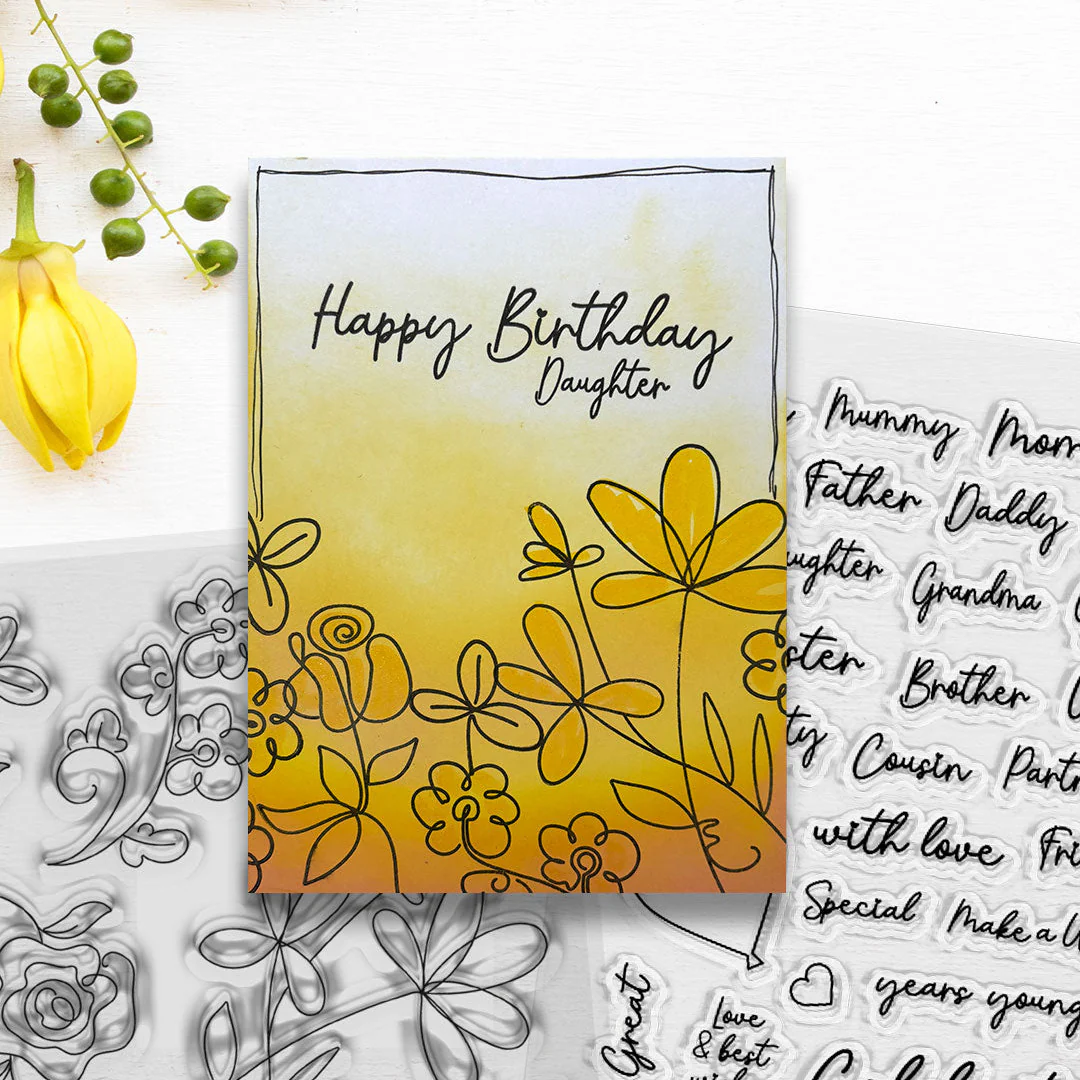 Happy Birthday
Daughter
Mummy
Father Daddy
Grandma
Brother
Cousin
with love
Special Make a
years young
Great
Love
& best